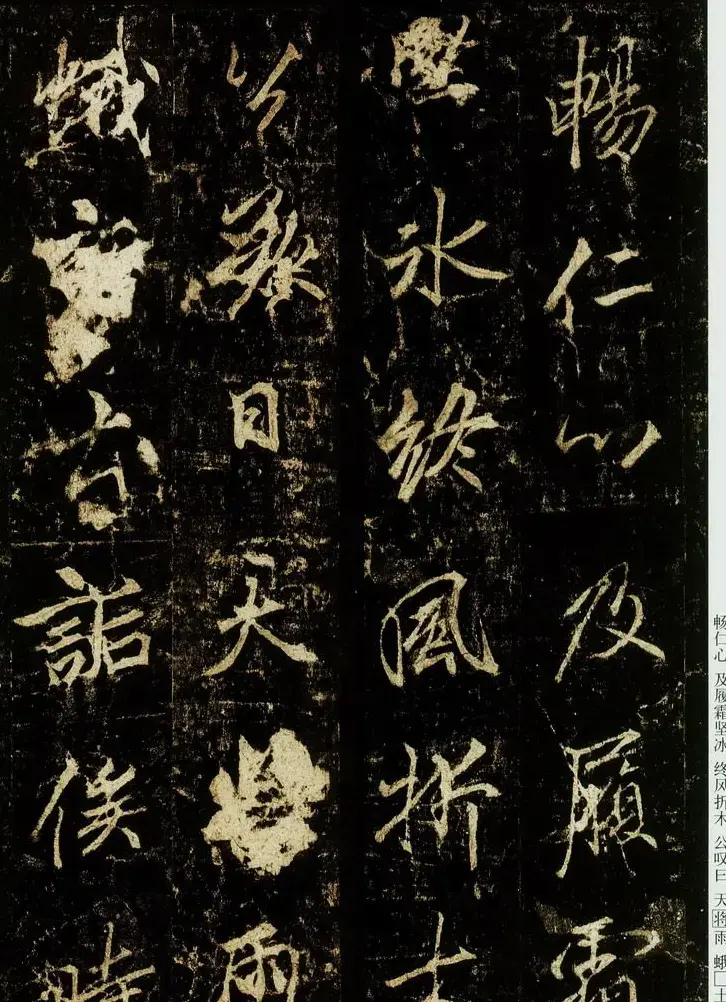 暢仁心及履霜
堅冰終風折木
公歎曰天雨
蛾詬俟時
畅仁心 及履霜坚冰 终风折木 公叹曰 天将雨 蛾